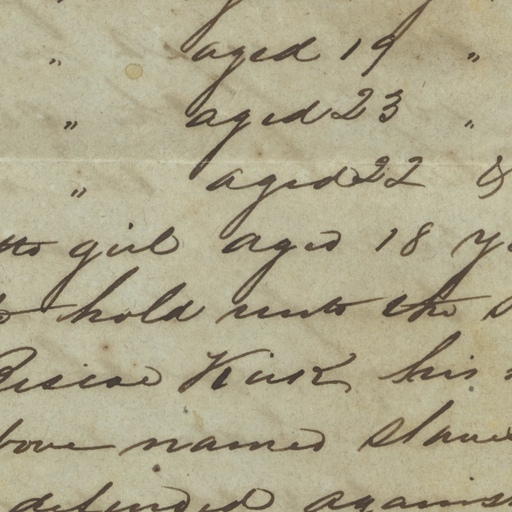 " aged 19 "
" aged 23 "
" aged 22 &
tto girl aged 18 ye
to hold unto the s
Briscoe Kirk his
bove named slave
defended against